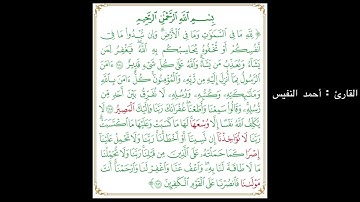 بِسْمِ ٱللَّهِ ٱلرَّحْمَٰنِ ٱلرَّحِيمِ
لِّلَّهِ مَا فِي ٱلسَّمَٰوَٰتِ وَمَا فِي ٱلْأَرْضِ وَإِن تُبْدُوا۟ مَا فِىٓ
أَنفُسِكُمْ أَوْ تُخْفُوهُ يُحَاسِبْكُم بِهِ ٱللَّهُ فَيَغْفِرُ لِمَن
يَشَآءُ وَيُعَذِّبُ مَن يَشَآءُ وَٱللَّهُ عَلَىٰ كُلِّ شَىْءٍ قَدِيرٌ ۝ ءَامَنَ
ٱلرَّسُولُ بِمَآ أُنزِلَ إِلَيْهِ مِن رَّبِّهِۦ وَٱلْمُؤْمِنُونَ كُلٌّ ءَامَنَ بِٱللَّهِ
وَمَلَٰٓئِكَتِهِۦ وَكُتُبِهِۦ وَرُسُلِهِۦ لَا نُفَرِّقُ بَيْنَ أَحَدٍ مِّن
رُّسُلِهِۦ وَقَالُوا۟ سَمِعْنَا وَأَطَعْنَا غُفْرَانَكَ رَبَّنَا وَإِلَيْكَ ٱلْمَصِيرُ ۝ لَا
يُكَلِّفُ ٱللَّهُ نَفْسًا إِلَّا وُسْعَهَا لَهَا مَا كَسَبَتْ وَعَلَيْهَا مَا ٱكْتَسَبَتْ
رَبَّنَا لَا تُؤَاخِذْنَآ إِن نَّسِينَآ أَوْ أَخْطَأْنَا رَبَّنَا وَلَا تَحْمِلْ عَلَيْنَآ
إِصْرًا كَمَا حَمَلْتَهُۥ عَلَى ٱلَّذِينَ مِن قَبْلِنَا رَبَّنَا وَلَا تُحَمِّلْنَا
مَا لَا طَاقَةَ لَنَا بِهِۦ وَٱعْفُ عَنَّا وَٱغْفِرْ لَنَا وَٱرْحَمْنَآ أَنتَ
مَوْلَىٰنَا فَٱنصُرْنَا عَلَى ٱلْقَوْمِ ٱلْكَٰفِرِينَ ۝
القارئ : أحمد النفيس